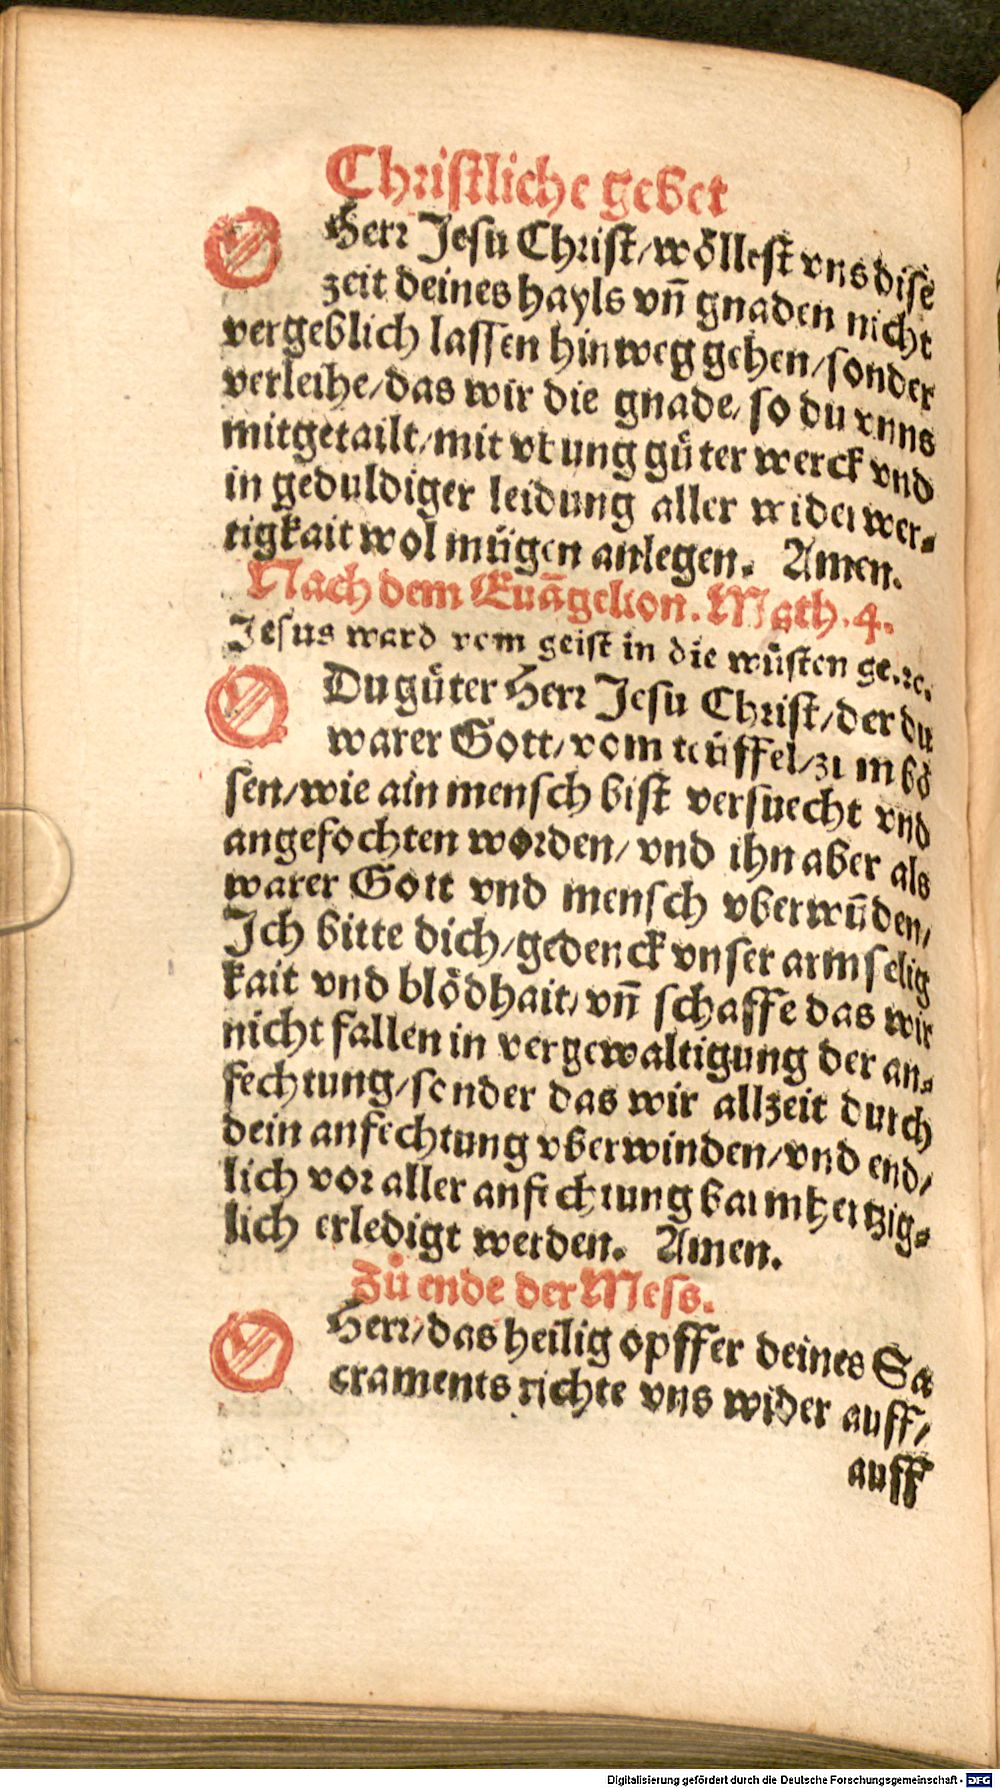 Christliche gebet
O Herr Jesu Christ/ wöllest vns dise
zeit deines hayls vñ gnaden nicht
vergeblich lassen hinweg gehen/ sonder
verleihe/ das wir die gnade/ so du vnns
mitgetailt/ mit vbung gůter werck vnd
in geduldiger leidung aller widerwer-
tigkait wol mügen anlegen. Amen.
Nach dem Euãgelion. Math. 4.
Jesus ward vom geist in die wůsten ge. ꝛc.
O Du gůter Herr Jesu Christ/ der du
warer Gott/ vom teüffel/ zum bö
sen/ wie ain mensch bist versuecht vnd
angefochten worden/ vnd ihn aber als
warer Gott vnd mensch vberwũden/
Ich bitte dich/ gedenck vnser armselig
kait vnd blödhait/ vñ schaffe das wir
nicht fallen in vergewaltigung der an-
fechtung/ sonder das wir allzeit durch
dein anfechtung vberwinden/ vnd end/
lich vor aller anfechtung barmhertzig-
lich erledigt werden. Amen.
Zů ende der Mess.
O Herr/ das heilig opffer deines Sa
craments richte vns wider auff/
auff
Digitalisierung gefördert durch die Deutsche Forschungsgemeinschaft - DFG